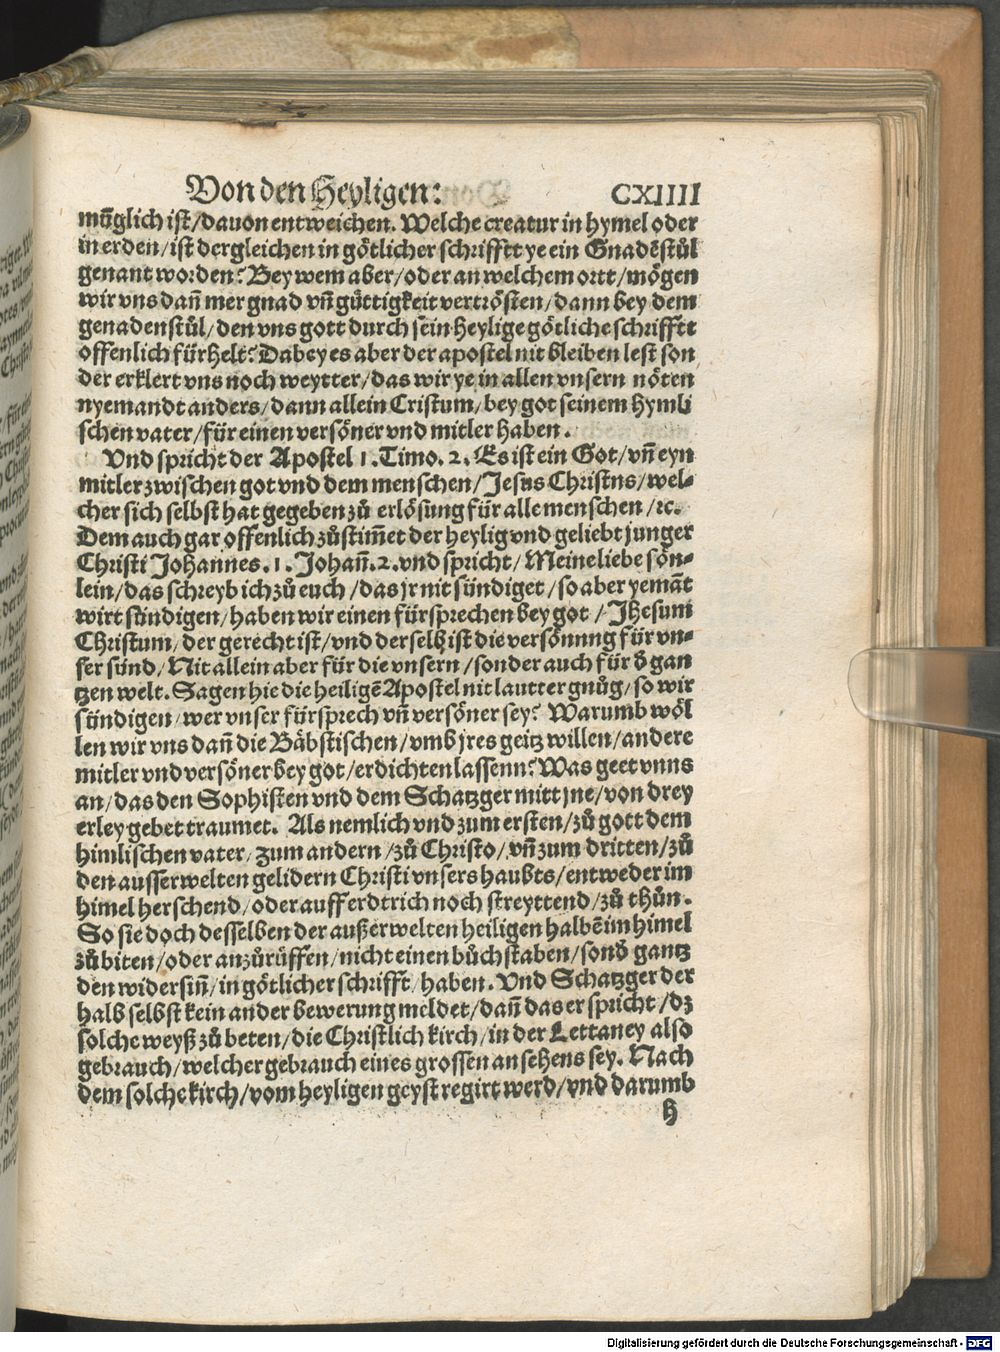 Von den Heyligen: CXIIII
mu̅glich ist/dauon entweichen. Welche creatur in hymel oder
in erden/ist dergleichen in götlicher schrifft ye ein Gnade̅stůl
genant worden? Bey wem aber/oder an welchem ortt/mögen
wir vns dan̅ mer gnad vn̅ güttigkeit vertrösten/dann bey dem
genadenstůl/den vns gott durch sein heylige götliche schrifft
offenlich fürhelt? Dabey es aber der apostel nit bleiben lest son
der erklert vns noch weytter/das wir ye in allen vnsern nöten
nyemandt anders/dann allein Cristum/bey got seinem hymli
schen vater/für einen versöner vnd mitler haben.
Vnd spricht der Apostel 1. Timo. 2. Es ist ein Got/vn̅ eyn
mitler zwischen got vnd dem menschen/Jesus Christns/wel-
cher sich selbst hat gegeben zů erlösung für alle menschen/ꝛc.
Dem auch gar offenlich zůstim̅et der heylig vnd geliebt junger
Christi Johannes. 1. Johan̅. 2. vnd spricht/Meine liebe sön-
lein/das schreyb ich zů euch/das jr nit sündiget/so aber yema̅t
wirt sündigen/haben wir einen fürsprechen bey got/Jhesum
Christum/der gerecht ist/vnd der selb ist die versönung für vn-
ser sünd/Nit allein aber für die vnsern/sonder auch für d̕ gan
tzen welt. Sagen hie die heilige̅ Apostel nit lautter gnůg/so wir
sündigen/wer vnser fürsprech vn̅ versöner sey? Warumb wöl
len wir vns dan̅ die Bäbstischen/vmb jres geitz willen/andere
mitler vnd versöner bey got/erdichten lassenn? Was geet vnns
an/das den Sophisten vnd dem Schatzger mitt jne/von drey
erley gebet traumet. Als nemlich vnd zum ersten/zů gott dem
himlischen vater/zum andern/zů Christo/vn̅ zum dritten/zů
den ausserwelten gelidern Christi vnsers haubts/entweder im
himel herschend/oder auff erdtrich noch streyttend/zů thůn.
So sie doch desselben der außerwelten heiligen halbe̅ im himel
zů biten/oder anzůrüffen/nicht einen bůchstaben/sond̕ gantz
den widersin̅/in götlicher schrifft/haben. Vnd Schatzger der
halb selbst kein ander bewerung meldet/dan̅ das er spricht/dz
solche weyß zů beten/die Christlich kirch/in der Lettaney also
gebrauch/welcher gebrauch eines grossen ansehens sey. Nach
dem solche kirch/vom heyligen geyst regirt werd/vnd darumb
h
Digitalisierung gefördert durch die Deutsche Forschungsgemeinschaft - DFG